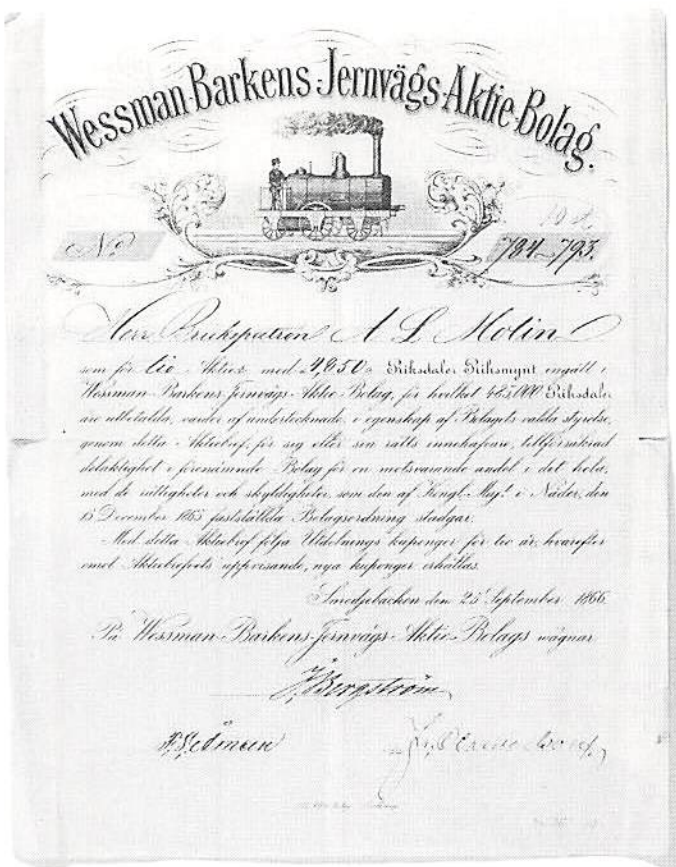 Wessman-Barkens-Jernvägs-Aktie-Bolag.
No 784-793.
Herr Brukspatron A L Molin
som för tio Aktier med 4,850 Riksdaler Riksmynt ingått i
Wessman-Barkens Jernvägs-Aktie-Bolag, för hvilket 485,000 Riksdaler
äro utbetalda, varder af undertecknade, i egenskap af Bolagets valda styrelse,
genom detta Aktiebref, för sig eller sin rätts innehafvare, tillförsäkrad
delaktighet i förenämnde Bolag för en motsvarande andel i det hela,
med de rättigheter och skyldigheter, som den af Kongl. Maj:t i Nåder, den
15 December 1865 fastställda Bolagsordning stadgar.
Med detta Aktiebref följa Utdelnings kuponger för tio år, hvarefter
emot Aktiebrefvets uppvisande, nya kuponger erhållas.
Smedjebacken den 25 September 1866.
På Wessman-Barkens-Jernvägs-Aktie-Bolags wägnar
J Bergström